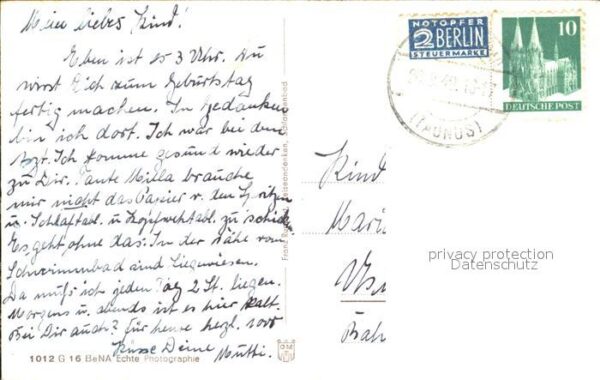 Mein liebes Kind!
Eben ist es 3 Uhr. Du
wirst Dich zum Geburtstag
fertig machen. In Gedanken
bin ich dort. Ich war bei dem
Arzt. Ich komme gesund wieder
zu Dir. Tante Milla brauche
mir nicht das Papier v. den Spritzen
u. Schlaftabl. u. Kopfwehtabl. zu schick
Es geht ohne das. In der Nähe vom
Schwimmbad sind Liegewiesen.
Da muß ich jeden Tag 2 St. liegen.
Morgens u. abends ist es hier kalt.
Bei Dir auch? Für heute herzl.
Küsse Deine Mutti.
1012 G 16 BeNA Echte Photographie
NOTOPFER
2 BERLIN
STEUERMARKE
10
DEUTSCHE POST
(TAUNUS)
Kind
Mari
privacy protection
Datenschutz